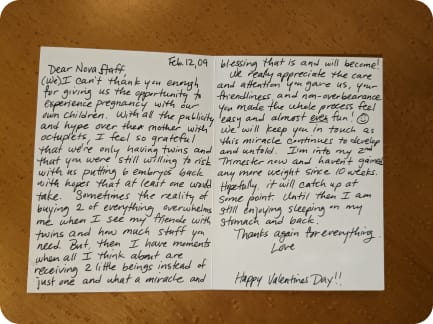 Feb. 12, 09
Dear Nova Staff,
(We) I can't thank you enough
for giving us the opportunity to
experience pregnancy with our
own children. With all the publicity
and hype over the mother with
octuplets, I feel so grateful
that we're only having twins and
that you were still willing to risk
with us putting 6 embryos back
with hopes that at least one would
take. Sometimes the reality of
buying 2 of everything overwhelms
me when I see my friends with
twins and how much stuff you
need. But, then I have moments
when all I think about are
receiving 2 little beings instead of
just one and what a miracle and
blessing that is and will become!
We really appreciate the care
and attention you gave us, your
friendliness, and non-overbearance.
You made the whole process feel
easy and almost even fun! ☺
We will keep you in touch as
this miracle continues to develop
and untold. I'm into my 2nd
Trimester now and haven't gained
any more weight since 10 weeks.
Hopefully, it will catch up at
some point. Until then I am
still enjoying sleeping on my
stomach and back!
Thanks again for everything.
Love
Happy Valentines Day!!